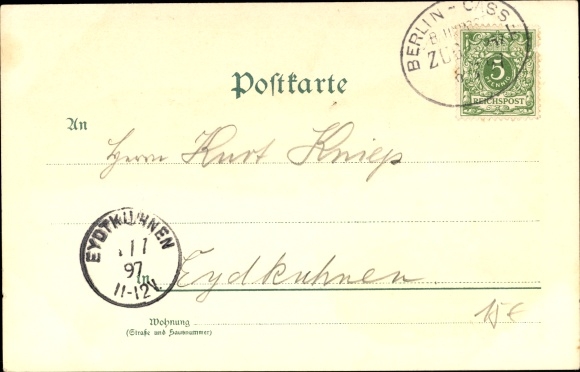 BERLIN - CASS
ZU
5
REICHSPOST
Postkarte
An
Herrn Kurt Kniep
EYDTKUHNEN
1 7
97
11-12V.
In Eydkuhnen.
15 €
Wohnung
(Straße und Hausnummer)